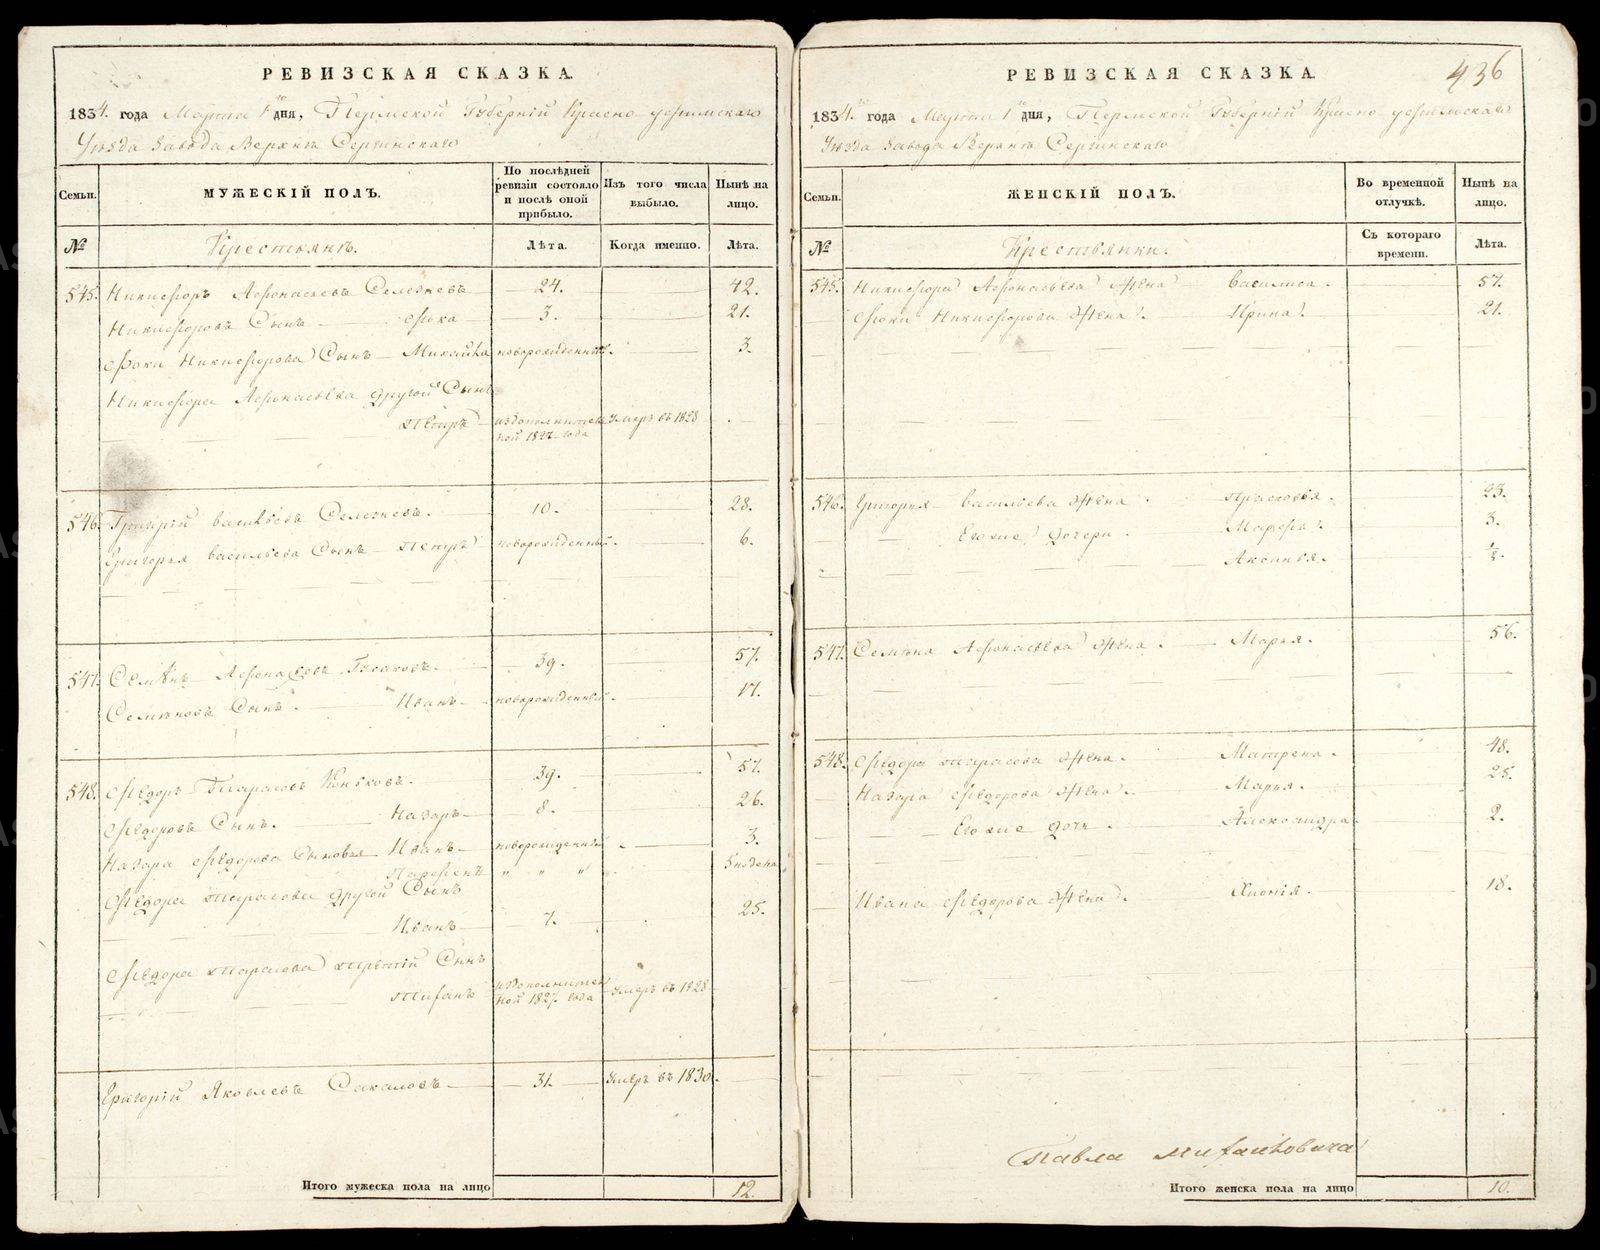 РЕВИЗСКАЯ СКАЗКА.
1834. года Марта 1го дня, Пермской Губерніи Красно уфимскаго
Уѣзда Завода Верхня Сергинскаго
Семьи.
МУЖЕСКІЙ ПОЛЪ.
По послѣдней ревизіи состояло и послѣ оной прибыло.
Изъ того числа выбыло.
Нынѣ на лицо.
№
Крестьянъ.
Лѣта.
Когда именно.
Лѣта.
545. Никифоръ Афонасьевъ Селезневъ 24. 42.
Никифоровъ Сынъ Фока 3. 21.
Фоки Никифорова Сынъ Михайла новорожденный. 3.
Никифора Афонасьева другой Сынъ
Петръ издополнитель ной 1827 года Умеръ въ 1828
546. Григорій Васильевъ Селезневъ. 10. 28.
Григорья Васильева Сынъ Петръ новорожденный. 6.
547. Семёнъ Афонасьевъ 39. 57.
Семеновъ Сынъ. Иванъ новорожденный. 17.
548. Федоръ Тарасовъ Коньковъ. 39. 57.
Федоровъ Сынъ. Назаръ 8. 26.
Назара Федорова Сыновья Иванъ новорожденный. 3.
Парфенъ " " " 5 недель
Федора Тарасова другой Сынъ
Иванъ 7. 25.
Федора Тарасова третій Сынъ
издополнитель ной 1827. года Умеръ въ 1828
Григорій Яковлевъ Сакаловъ 31. Умеръ въ 1830.
Итого мужеска пола на лицо 12.
436
РЕВИЗСКАЯ СКАЗКА.
1834. года Марта 1го дня, Пермской Губерніи Красно уфимскаго
Уѣзда Завода Верхня Сергинскаго
Семьи.
ЖЕНСКІЙ ПОЛЪ.
Во временной отлучкѣ.
Нынѣ на лицо.
№
Крестьянки.
Съ котораго времени.
Лѣта.
545. Никифора Афонасьева Жена Василиса. 57.
Фоки Никифорова Жена. Ирина. 21.
546. Григорья Васильева Жена Прасковья. 23.
Егоже дочери. Марфа. 3.
Аксинья. ½.
547. Семёна Афонасьева Жена. Марья. 56.
548. Федора Тарасова Жена. Матрена. 48.
Назара Федорова Жена. Марья. 25.
Егоже дочь. Александра. 2.
Ивана Федорова Жена. Хионія. 18.
Павла Михайловича
Итого женска пола на лицо 10.